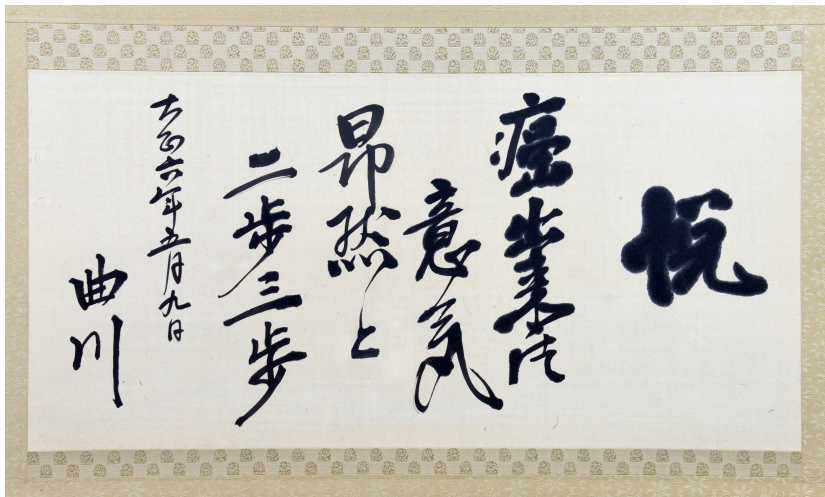 悦
癌出来つ
意気
昂然と
二歩三歩
大正六年五月九日
曲川